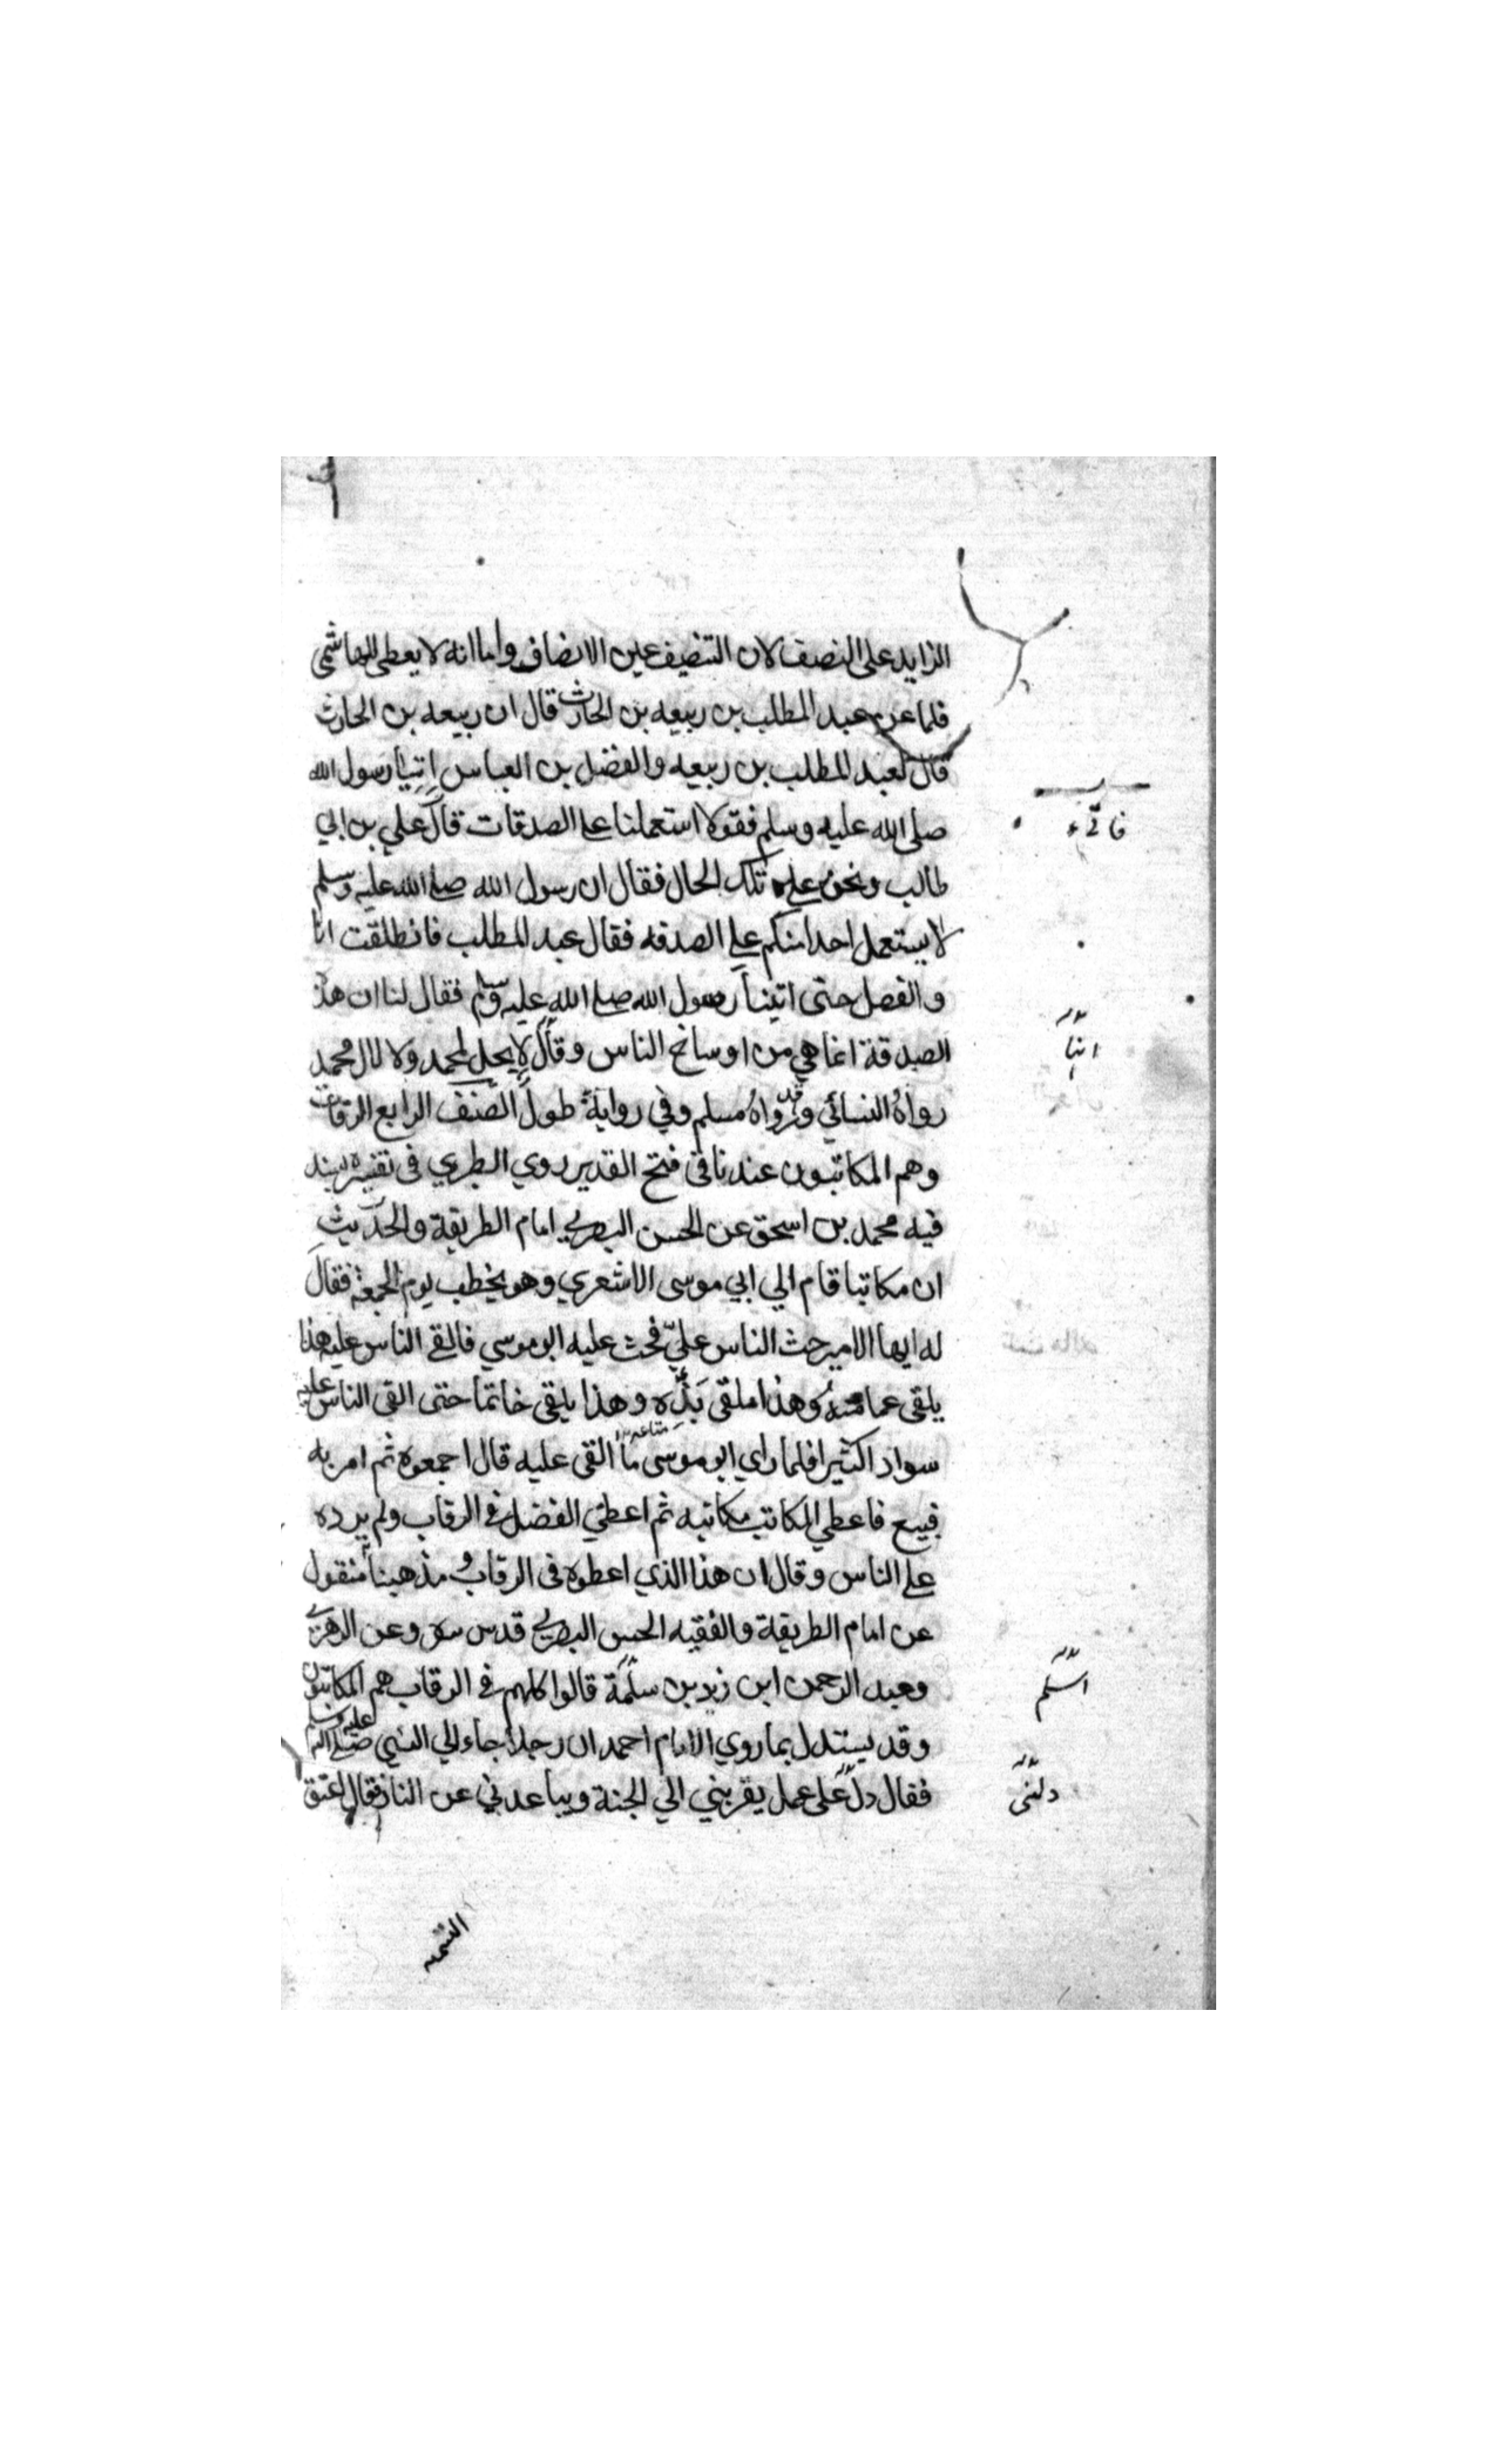 الزايد على النصف لان التنصيف عين الانصاف واما انه لا يعطى للهاشمي
فلما عن عبد المطلب بن ربيعه بن الحارث قال ان ربيعه بن الحارث
قال لعبد المطلب بن ربيعه والفضل بن العباس اتيا رسول الله
صلى الله عليه وسلم فقولا استعملنا على الصدقات قال علي بن ابي
طالب ونحن على تلك الحال فقال ان رسول الله صلى الله عليه وسلم
لا يستعمل احدا منكم على الصدقه فقال عبد المطلب فانطلقت انا
والفضل حتى اتينا رسول الله صلى الله عليه وسلم فقال لنا ان هذ
الصدقة انما هي من اوساخ الناس وقال لا يحل لمحمد ولا لال محمد
رواه النسائي وقد رواه مسلم وفي رواية طول الصنف الرابع الرقاب
وهم المكاتبون عندنا في فتح القدير روي الطبري في تفسيره بسند
فيه محمد بن اسحق عن الحسن البصري امام الطريقة والحديث
ان مكاتبا قام الي ابي موسى الاشعري وهو يخطب يوم الجمعة فقال
له ايها الامير حث الناس عليّ فحث عليه ابو موسي فالقى الناس عليه هذا
يلقى عمامته وهذا ملقى وهذا يلقى خاتما حتى القى الناس عليه
سوادا كثيرا فلما راي ابو موسى ما القى عليه قال اجمعوه ثم امر به
فبيع فاعطي المكاتب مكاتبه ثم اعطي الفضل في الرقاب ولم يرده
على الناس وقال ان هذا الذي اعطوه في الرقاب و مذهبنا منقول
عن امام الطريقة والفقيه الحسن البصري قدس سره وعن الزهري
وعبد الرحمن ابن زيد بن سلمة قالوا كلهم في الرقاب هم المكاتبون
وقد يستدل بما روي الامام احمد ان رجلا جاء الي النبي صلى الله عليه وسلم
فقال دل على عمل يقربني الي الجنة ويباعدني عن النار فقال اعتق
اتيا
اسلم
دلني
النسمه